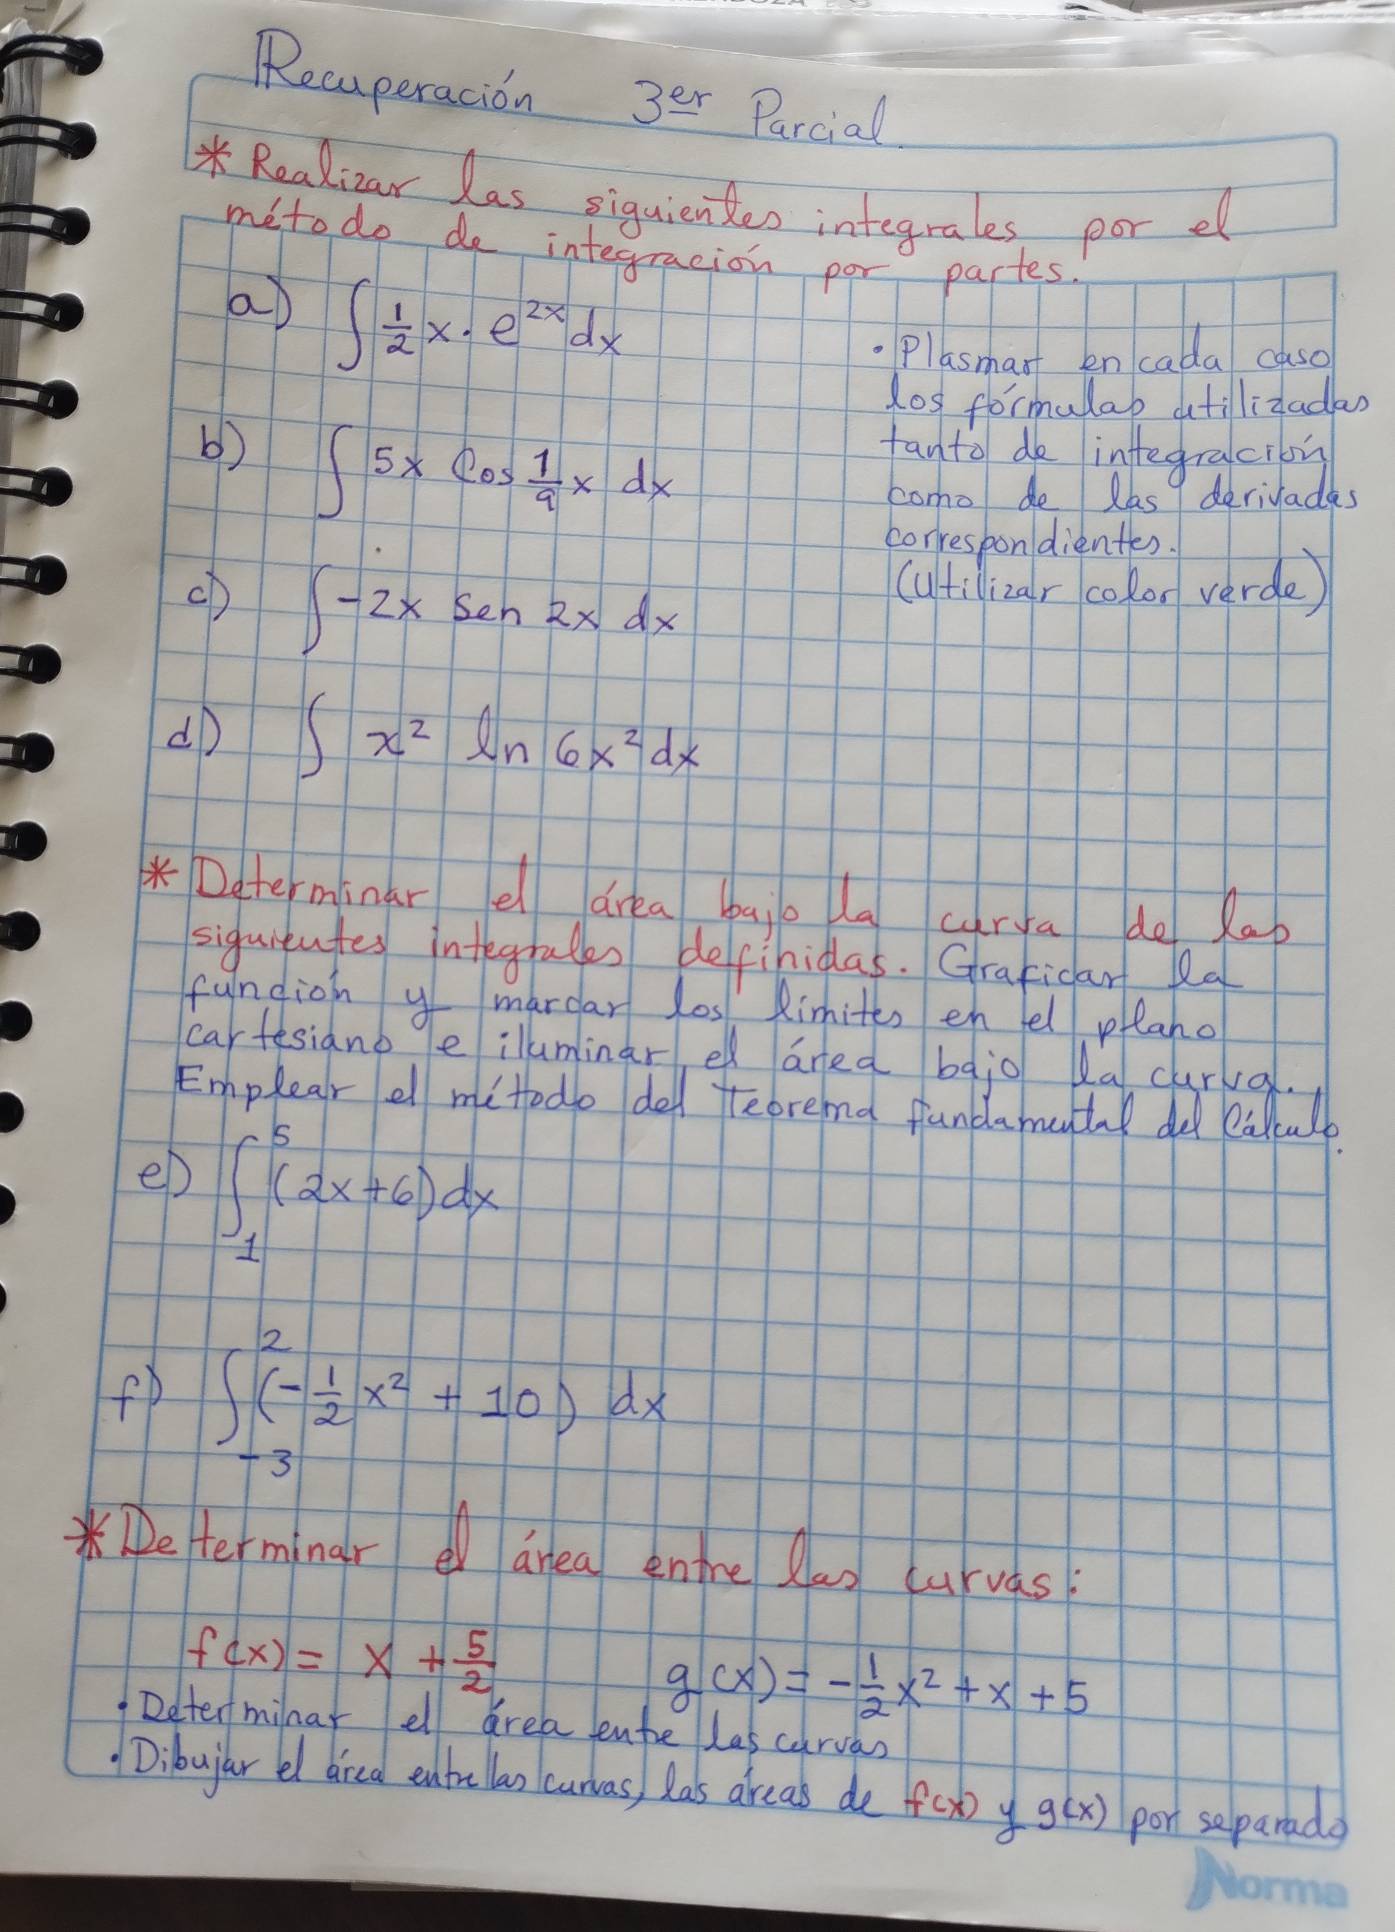 Recuperación 3er Parcial
* Realizar las siguientes integrales por el
método de integración por partes.
a) ∫ 1/2 x · e^2x dx
• Plasmar en cada caso
los fórmulas utilizadas
tanto de integración
como de las derivadas
correspondientes.
(utilizar color verde)
b) ∫ 5x Cos 1/9 x dx
c) ∫ -2x sen 2x dx
d) ∫ x² ln 6x² dx
* Determinar el área bajo la curva de las
siguientes integrales definidas. Graficar la
función y marcar los límites en el plano
cartesiano e iluminar el área bajo la curva.
Emplear el método del Teorema fundamental del Cálculo.
e) ∫₁⁵ (2x+6) dx
f) ∫₋₃² (-1/2 x² + 10) dx
* Determinar el área entre las curvas:
f(x) = x + 5/2 g(x) = -1/2 x² + x + 5
• Determinar el área entre las curvas
• Dibujar el área entre las curvas, las áreas de f(x) y g(x) por separado
Norma